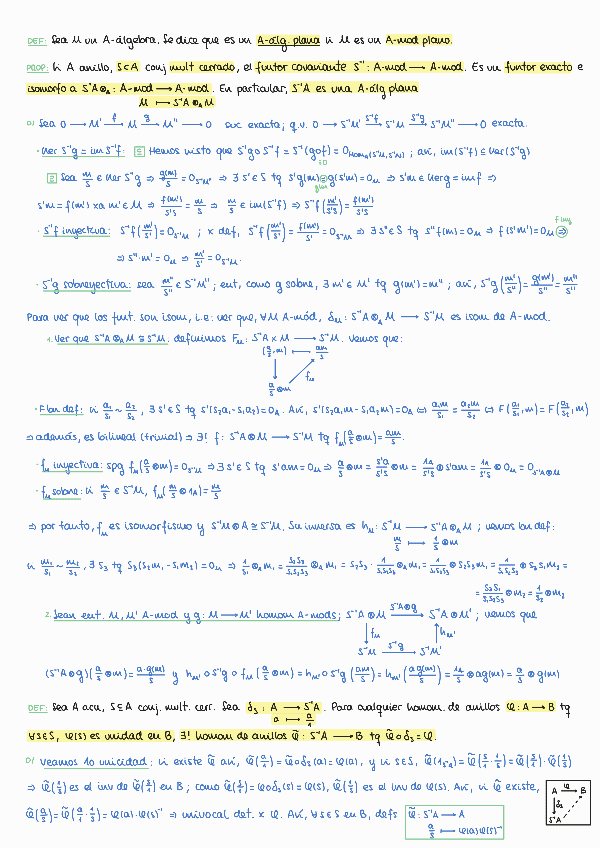 DEF: Sea M un A-álgebra. Se dice que es un A-álg. plana si M es un A-mod plano.
PROP: Si A anillo, S⊂A conj mult cerrado, el funtor covariante S⁻¹: A-mod → A-mod. Es un funtor exacto e
isomorfo a S⁻¹A⊗_A : A-mod → A-mod. En particular, S⁻¹A es una A-álg plana
M ↦ S⁻¹A⊗_A M
D/ Sea 0 → M' →f M →g M'' → 0 suc exacta; q.v. 0 → S⁻¹M' →S⁻¹f S⁻¹M →S⁻¹g S⁻¹M'' → 0 exacta.
· Ker S⁻¹g = im S⁻¹f: ⊇ Hemos visto que S⁻¹g∘S⁻¹f = S⁻¹(g∘f) = 0 ; así, im(S⁻¹f) ⊆ Ker(S⁻¹g)
⊆ Sea m/s ∈ Ker S⁻¹g ⇒ g(m)/s = 0_S⁻¹M'' ⇒ ∃ s' ∈ S tq s'g(m) = g(s'm) = 0_M ⇒ s'm ∈ Ker g = im f ⇒
s'm = f(m') xa m' ∈ M ⇒ f(m')/s's = m/s ⇒ m/s ∈ im(S⁻¹f) ⇒ S⁻¹f(m'/s's) = f(m')/s's
· S⁻¹f inyectiva: S⁻¹f(m'/s') = 0_S⁻¹M ; x def, S⁻¹f(m'/s') = f(m')/s' = 0_S⁻¹M ⇒ ∃ s'' ∈ S tq s''f(m) = 0_M ⇒ f(s'm') = 0_M ⇒ f inj
⇒ s''·m' = 0_M ⇒ m'/s' = 0_S⁻¹M'.
· S⁻¹g sobreyectiva: sea m''/s'' ∈ S⁻¹M''; ent, como g sobre, ∃ m' ∈ M' tq g(m') = m''; así, S⁻¹g(m'/s'') = g(m')/s'' = m''/s''
Para ver que los funt. son isom, i.e: ver que, ∀M A-mód, δ_M : S⁻¹A⊗_A M → S⁻¹M es isom de A-mod.
1. Ver que S⁻¹A⊗_A M ≅ S⁻¹M. definimos F_M: S⁻¹A × M → S⁻¹M. Vemos que:
(a/s, m) ↦ am/s
f_M
a/s ⊗ m
· F bien def: si a₁/s₁ ~ a₂/s₂, ∃ s' ∈ S tq s'(s₂a₁ - s₁a₂) = 0_A. Así, s'(s₂a₁m - s₁a₂m) = 0_A ⇔ a₁m/s₁ = a₂m/s₂ ⇔ F(a₁/s₁, m) = F(a₂/s₂, m)
⇒ además, es bilineal (trivial) ⇒ ∃! f: S⁻¹A⊗M → S⁻¹M tq f_M(a/s ⊗ m) = am/s.
· f_M inyectiva: spg f_M(a/s ⊗ m) = 0_S⁻¹M ⇒ ∃ s' ∈ S tq s'am = 0_M ⇒ a/s ⊗ m = s'a/s's ⊗ m = 1_A/s's ⊗ s'am = 1_A/s's ⊗ 0_M = 0_S⁻¹A⊗M
· f_M sobre: si m/s ∈ S⁻¹M, f_M(1/s ⊗ m) = m/s
⇒ por tanto, f_M es isomorfismo y S⁻¹M⊗A ≅ S⁻¹M. Su inversa es h_M: S⁻¹M → S⁻¹A⊗_A M ; vemos bn def:
m/s ↦ 1/s ⊗ m
si m₁/s₁ ~ m₂/s₂, ∃ s₃ tq s₃(s₂m₁ - s₁m₂) = 0_M ⇒ 1/s₁ ⊗_A m₁ = s₂s₃/s₁s₂s₃ ⊗_A m₁ = s₂s₃ · 1/s₁s₂s₃ ⊗_A m₁ = 1/s₁s₂s₃ ⊗ s₂s₃m₁ = 1/s₁s₂s₃ ⊗ s₃s₁m₂ =
= s₃s₁/s₁s₂s₃ ⊗ m₂ = 1/s₂ ⊗ m₂
2. Sean ent. M, M' A-mod y g: M → M' homom A-mods; S⁻¹A⊗M →S⁻¹A⊗g S⁻¹A⊗M' ; vemos que
f_M h_M'
S⁻¹M →S⁻¹g S⁻¹M'
(S⁻¹A⊗g)(a/s ⊗ m) = a·g(m)/s y h_M' ∘ S⁻¹g ∘ f_M (a/s ⊗ m) = h_M' ∘ S⁻¹g (am/s) = h_M'(ag(m)/s) = 1_A/s ⊗ ag(m) = a/s ⊗ g(m)
DEF: Sea A acu, S⊆A conj. mult. cerr. Sea δ_S : A → S⁻¹A. Para cualquier homom. de anillos φ: A → B tq
a ↦ a/1
∀s∈S, φ(s) es unidad en B, ∃! homom de anillos φ̃ : S⁻¹A → B tq φ̃∘δ_S = φ.
D/ Veamos 1o unicidad: si existe φ̃ así, φ̃(a/1) = φ̃∘δ_S(a) = φ(a), y si s∈S, φ̃(1_S⁻¹A) = φ̃(s/1 · 1/s) = φ̃(s/1)·φ̃(1/s)
⇒ φ̃(1/s) es el inv de φ̃(s/1) en B; como φ̃(s/1) = φ∘δ_S(s) = φ(s), φ̃(1/s) es el inv de φ(s). Así, si φ̃ existe,
φ̃(a/s) = φ̃(a/1 · 1/s) = φ(a)·φ(s)⁻¹ ⇒ unívocal det. x φ. Así, ∀s∈S en B, defs φ̃ : S⁻¹A → A
a/s ↦ φ(a)φ(s)⁻¹
A →φ B
δ_S
S⁻¹A